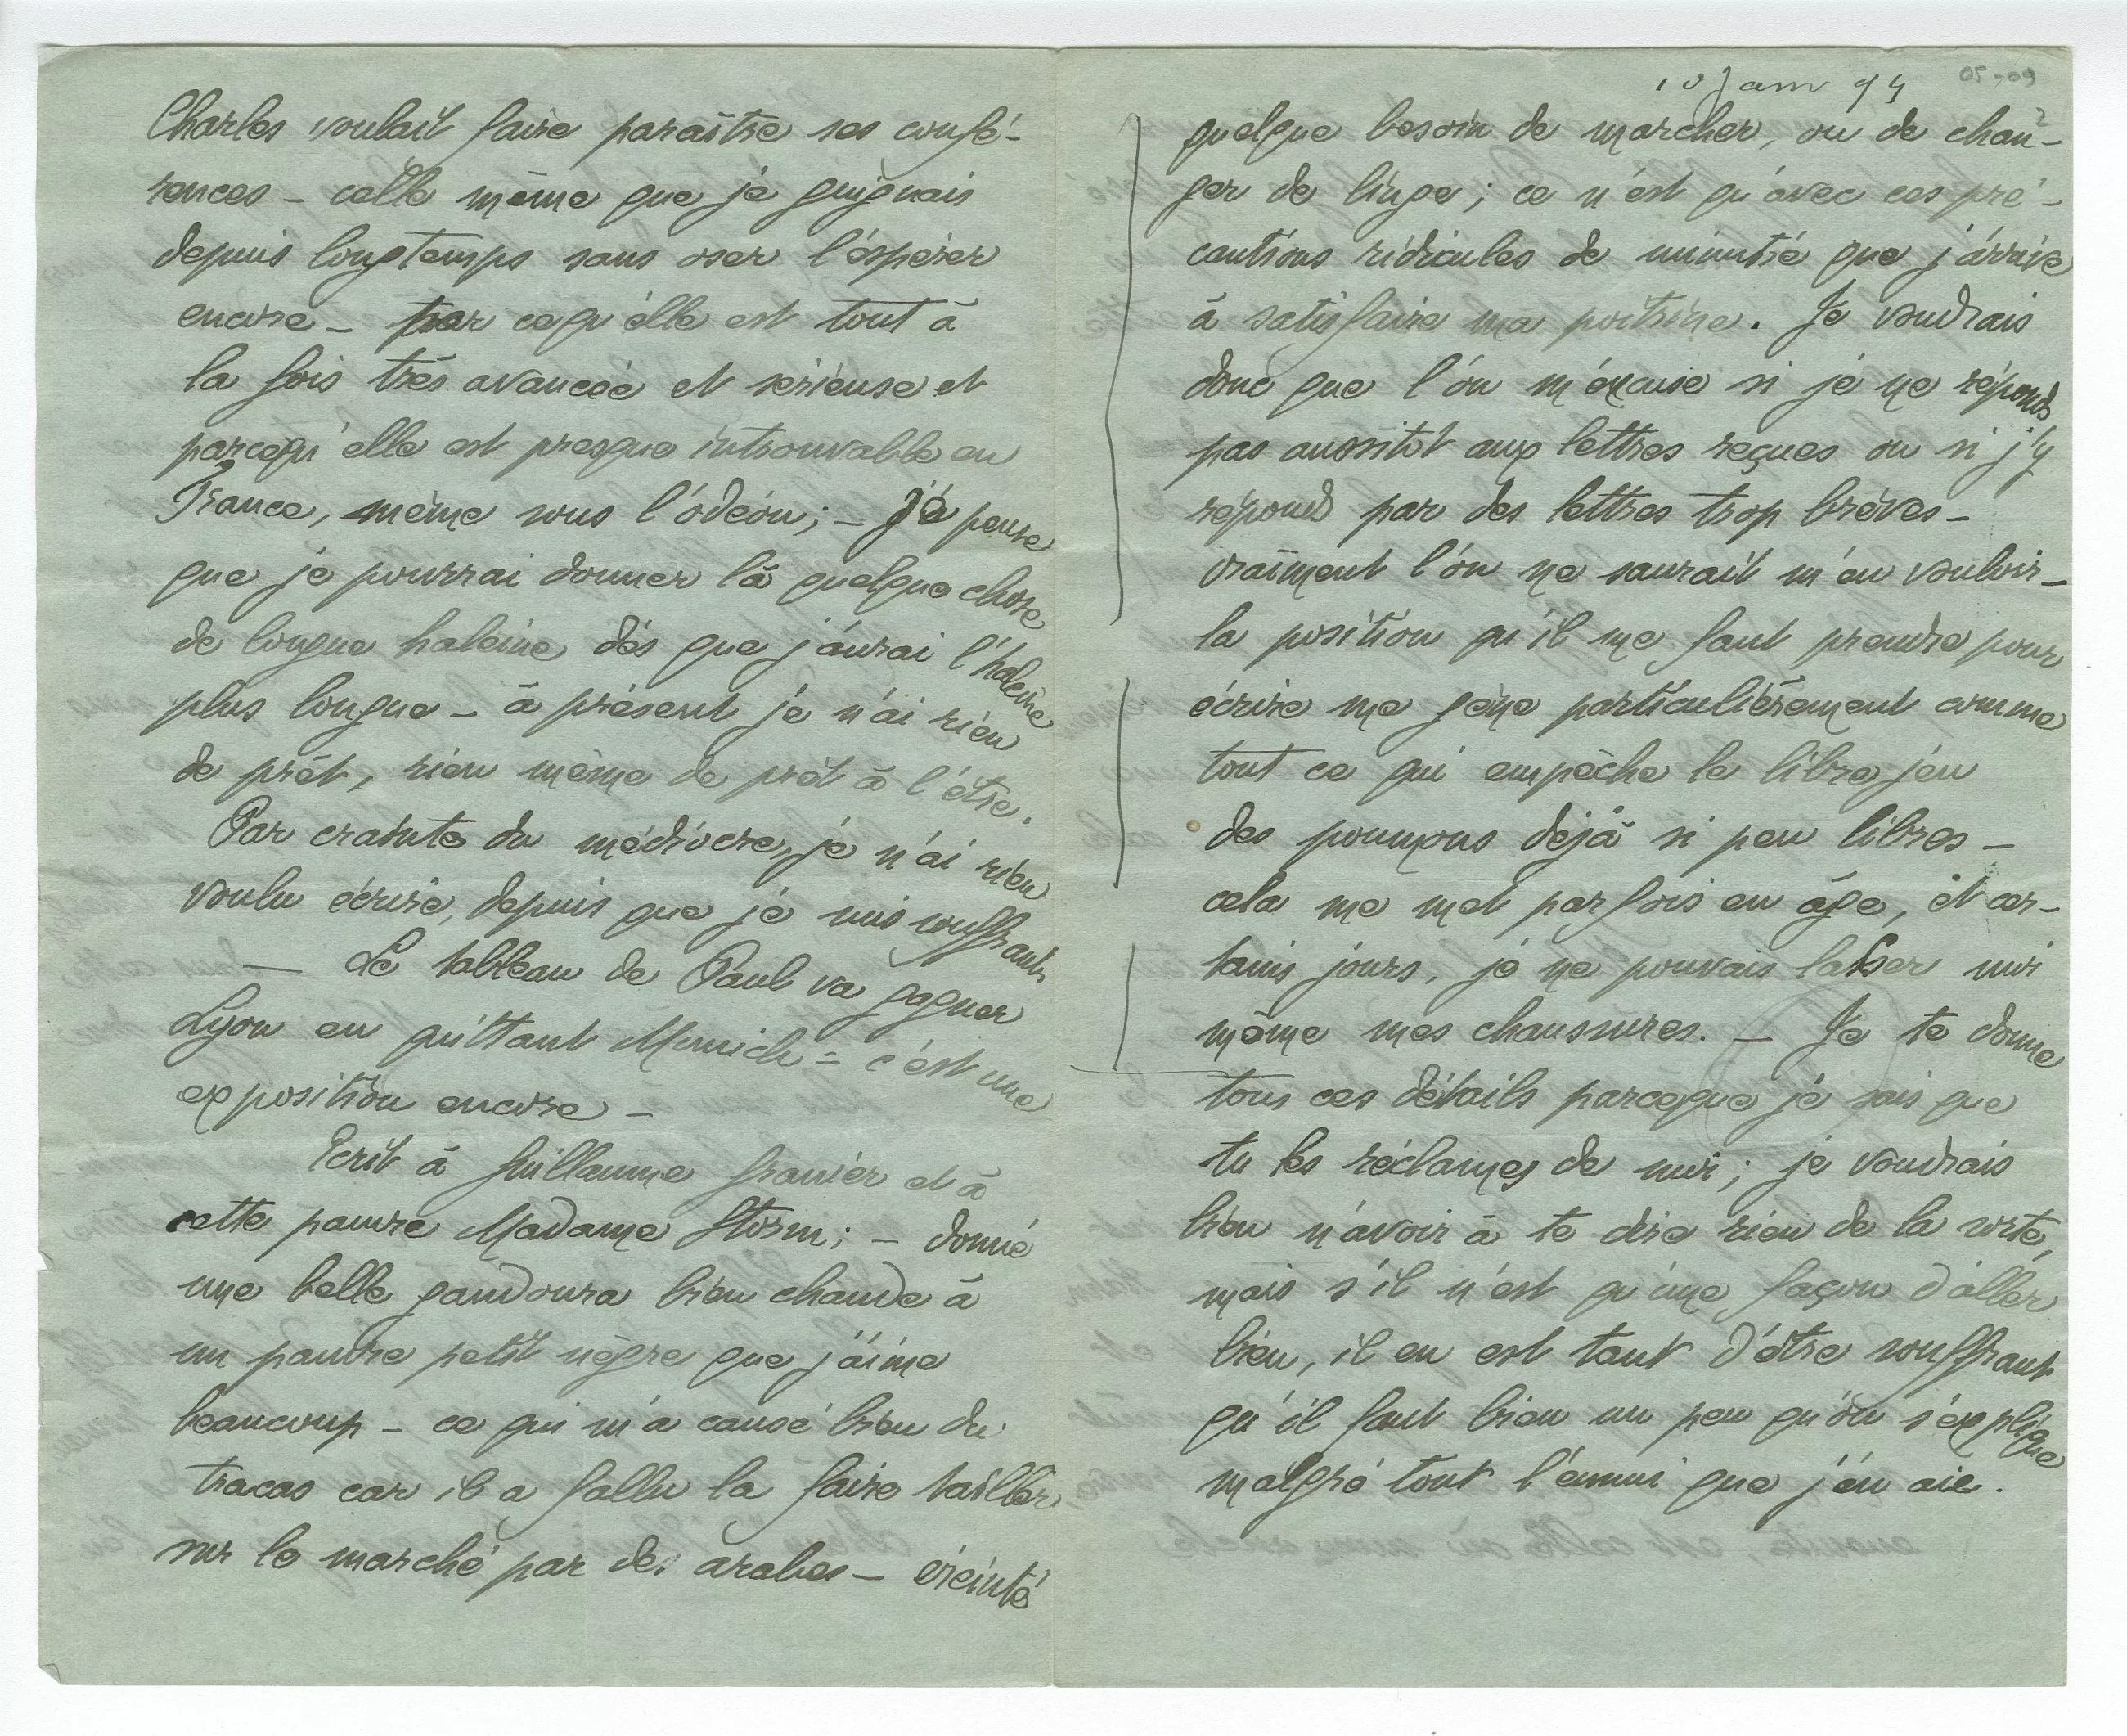 Charles voulait faire paraître ses confé-
rences – celle même que je guignais
depuis longtemps sans oser l'espérer
encore – par ce qu'elle est tout à
la fois très avancée et sérieuse et
parcequ'elle est presque introuvable en
France, même sous l'odéon; – je pense
que je pourrai donner là quelque chose
de longue haleine dès que j'aurai l'haleine
plus longue – à présent je n'ai rien
de prêt, rien même de prêt à l'être.
Par crainte du médiocre, je n'ai rien
voulu écrire, depuis que je suis souffrant,
— Le tableau de Paul va gagner
Lyon en quittant Munich = c'est une
exposition encore –
Ecrit à Guillaume Granier et à
cette pauvre Madame Storm; – donné
une belle gandoura bien chaude à
un pauvre petit nègre que j'aime
beaucoup – ce qui m'a causé bien du
tracas car il a fallu la faire tailler
sur le marché par des arabes – éreinté
10 Janv 94
05-09
quelque besoin de marcher, ou de chan-
ger de linge; ce n'est qu'avec ces pré-
cautions ridicules de minutie que j'arrive
à satisfaire ma poitrine. Je voudrais
donc que l'on m'excuse si je ne réponds
pas aussitot aux lettres reçues ou si j'y
répond par des lettres trop brèves –
vraiment l'on ne saurait m'en vouloir –
la position qu'il me faut prendre pour
écrire me gêne particulièrement comme
tout ce qui empêche le libre jeu
des poumons déjà si peu libres –
cela me met parfois en âge, et cer-
tains jours, je ne pouvais lasser moi
même mes chaussures. — Je te donne
tous ces détails parceque je sais que
tu les réclames de moi; je voudrais
bien n'avoir à te dire rien de la sorte,
mais s'il n'est qu'une façon d'aller
bien, il en est tant d'être souffrant
qu'il faut bien un peu qu'on s'explique
malgré tout l'ennui que j'en aie.